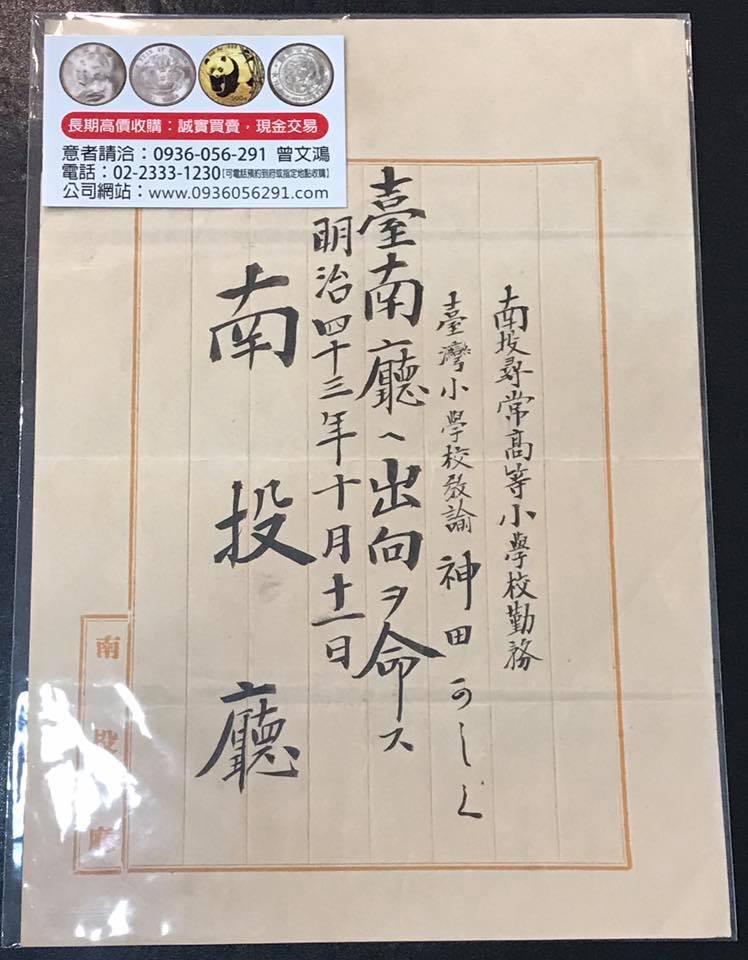 長期高價收購：誠實買賣，現金交易
意者請洽：0936-056-291 曾文鴻
電話：02-2333-1230[可電話預約到府或指定地點收購]
公司網站：www.0936056291.com
南投尋常高等小學校勤務
臺灣小學校教諭 神田
臺南廳ヘ出向ヲ命ス
明治四十三年十月十一日
南投廳
南投廳